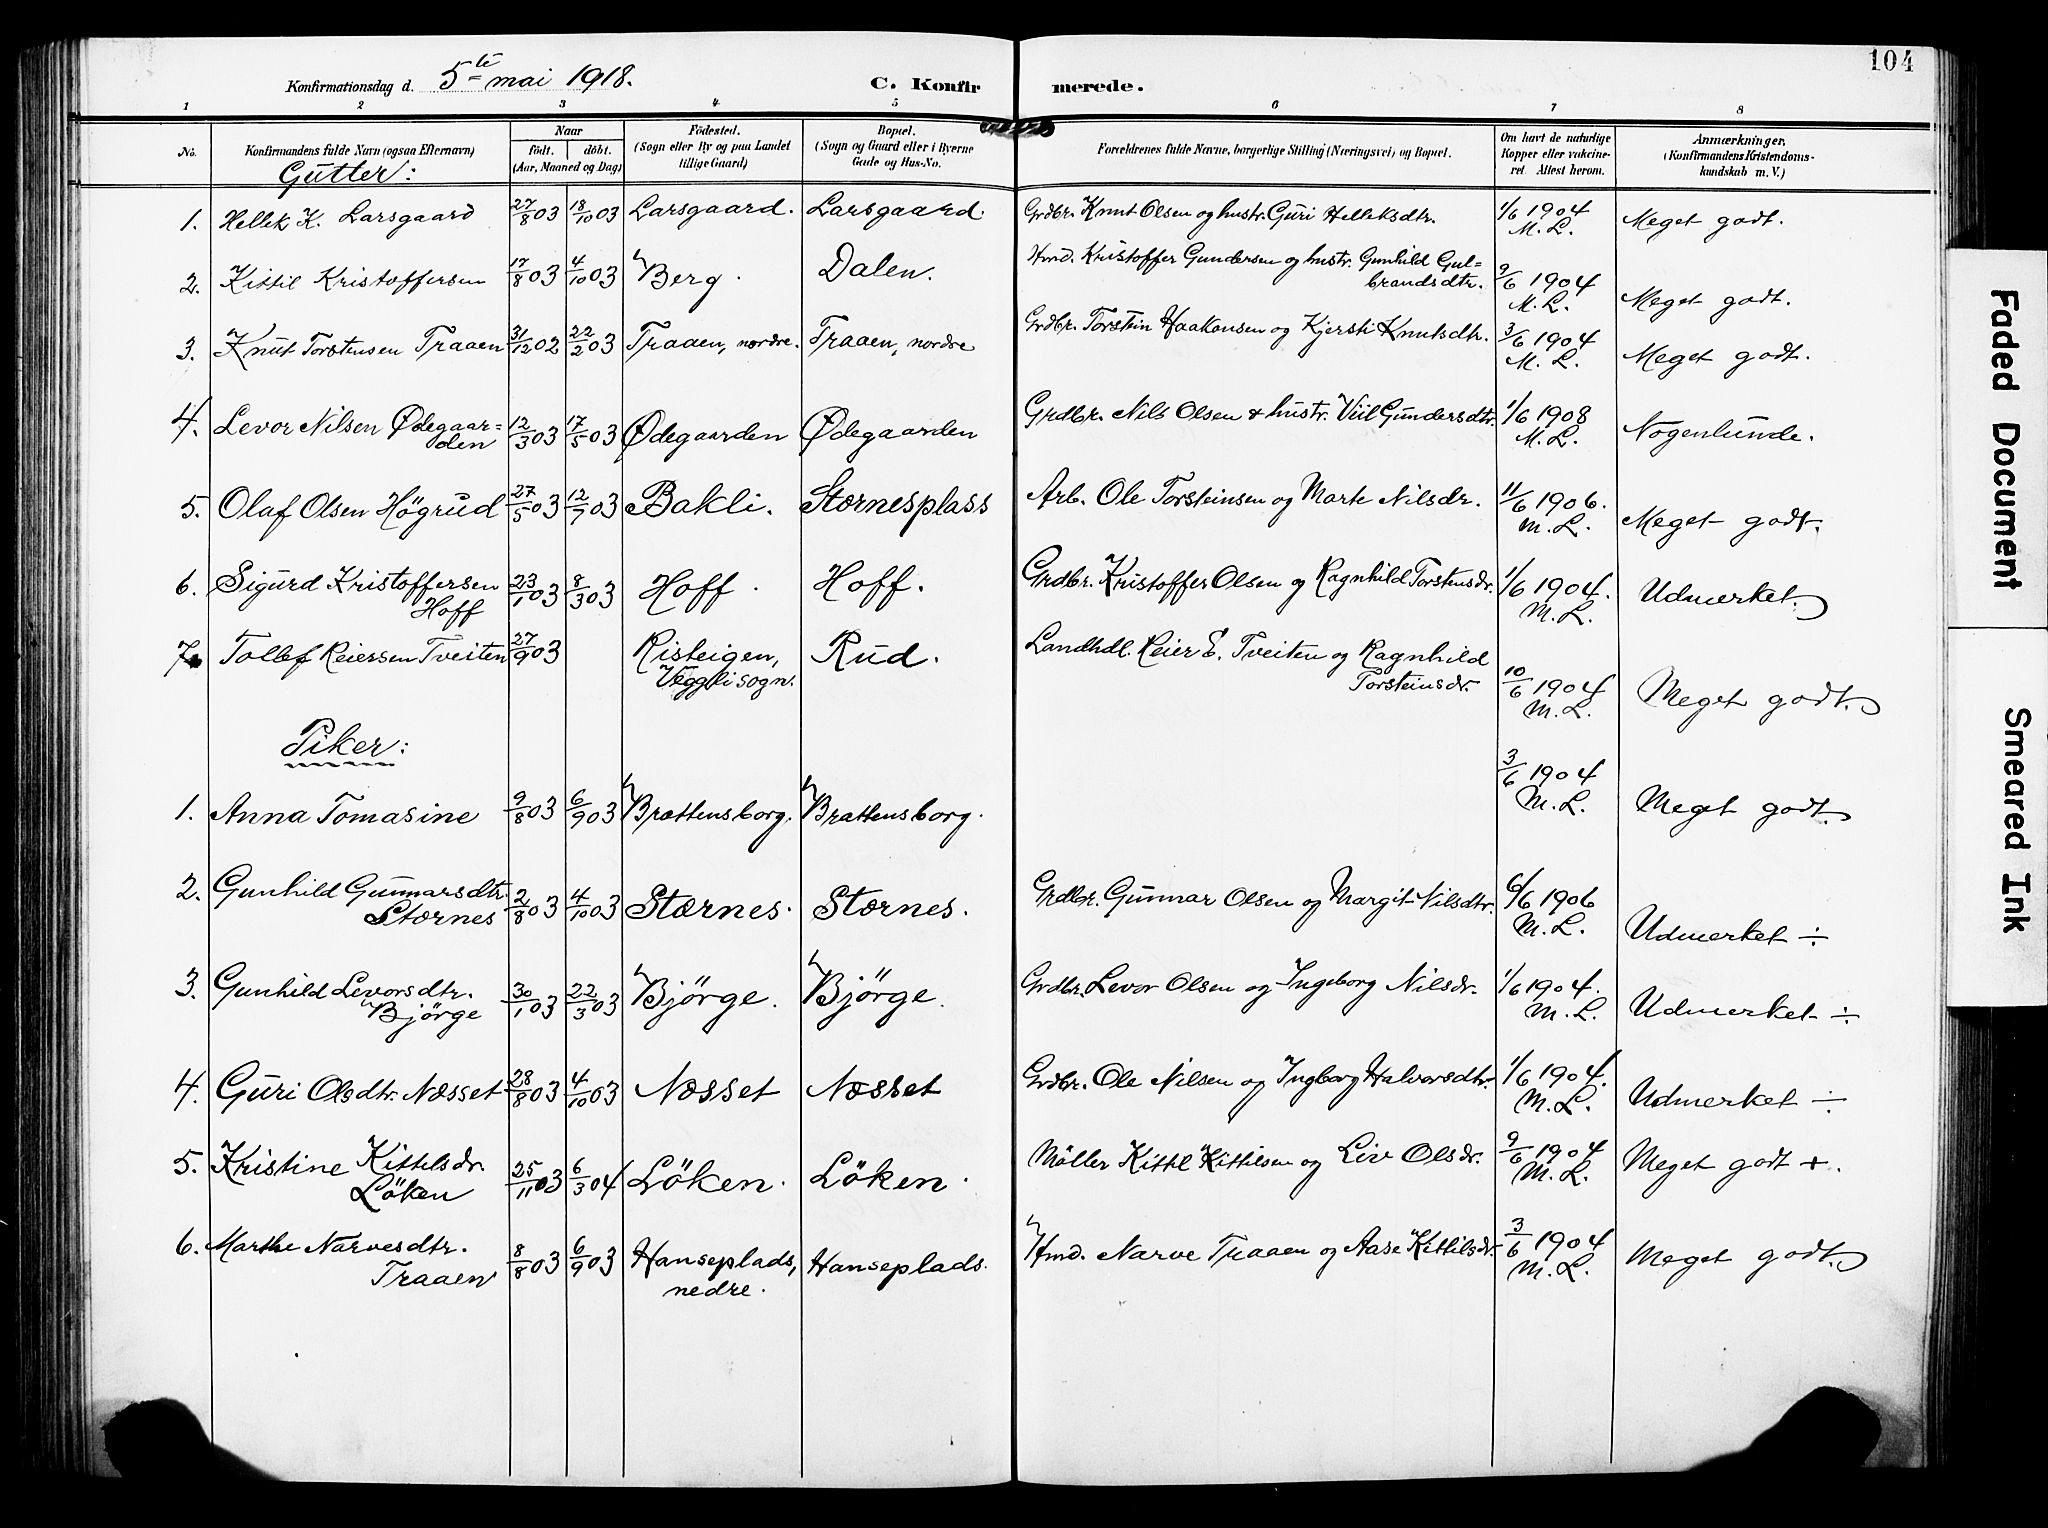 104
Konfirmationsdag d. 5te mai 1918. C. Konfirmerede.
1 2 3 4 5 6 7 8
No. Konfirmandens fulde Navn (ogsaa Efternavn) Naar födt. döbt. (Aar, Maaned og Dag) Födested. (Sogn eller By og paa Landet tillige Gaard) Bopæl. (Sogn og Gaard eller i Byerne Gade og Hus-No. Forældrenes fulde Navne, borgerlige Stilling (Næringsvei) og Bopæl. Om havt de naturlige Kopper eller vakcineret. Attest herom. Anmærkninger. (Konfirmandens Kristendomskundskab m. V.)
Gutter:
1. Hellek K. Larsgaard 27/8 03 18/10 03 Larsgaard. Larsgaard. Grdbr. Knut Olsen og hustr. Guri Helleksdtr. 1/6 1904 M. L. Meget godt.
2. Kittil Kristoffersen 17/8 03 4/10 03 Berg. Dalen. Hmd. Kristoffer Gundersen og hustr. Gunhild Gulbrandsdtr. 9/6 1904 M. L. Meget godt.
3. Knut Torstensen Traaen 31/12 02 22/2 03 Traaen, nordre. Traaen, nordre Grdbr. Torstein Haakonsen og Kjersti Knutsdtr. 3/6 1904 M. L. Meget godt.
4. Levor Nilsen Ødegaarden 12/3 03 17/5 03 Ødegaarden Ødegaarden Grdbr. Nils Olsen & hustr. Viil Gundersdtr. 1/6 1908 M. L. Nogenlunde.
5. Olaf Olsen Högrud 27/5 03 12/7 03 Bakli. Stærnesplass Arb. Ole Torsteinsen og Marte Nilsdr. 11/6 1906. M. L. Meget godt.
6. Sigurd Kristoffersen Hoff 23/1 03 8/3 03 Hoff. Hoff. Grdbr. Kristoffer Olsen og Ragnhild Torstensdr. 1/6 1904. M. L. Udmerket.
7. Tollef Reiersen Tveiten 27/9 03 Risteigen, Veggli sogn. Rud. Landhdl. Reier E. Tveiten og Ragnhild Torsteinsdr. 10/6 1904 M. L. Meget godt.
Piker:
1. Anna Tomasine 9/8 03 6/9 03 Brattensborg. Brattensborg. 3/6 1904 M. L. Meget godt.
2. Gunhild Gunnarsdtr. Stærnes 2/8 03 4/10 03 Stærnes. Stærnes. Grdbr. Gunnar Olsen og Margit Nilsdtr. 6/6 1906 M. L. Udmerket ÷
3. Gunhild Levorsdtr. Bjørge 30/1 03 22/3 03 Björge. Björge. Grdbr. Levor Olsen og Ingeborg Nilsdr. 1/6 1904. M. L. Udmerket ÷
4. Guri Olsdtr. Næsset 28/8 03 4/10 03 Næsset Næsset Grdbr. Ole Nilsen og Ingborg Halvorsdtr. 1/6 1904. M. L. Udmerket ÷
5. Kristine Kittilsdr. Löken 25/11 03 6/3 04 Löken. Löken. Möller Kittil Kittilsen og Liv Olsdr. 9/6 1904 M. L. Meget godt +.
6. Marthe Narvesdtr. Traaen 8/8 03 6/9 03 Hanseplads, nedre. Hanseplads. Hmd. Narve Traaen og Aase Kittilsdr. 3/6 1904 M. L. Meget godt.
Faded Document
Smeared Ink